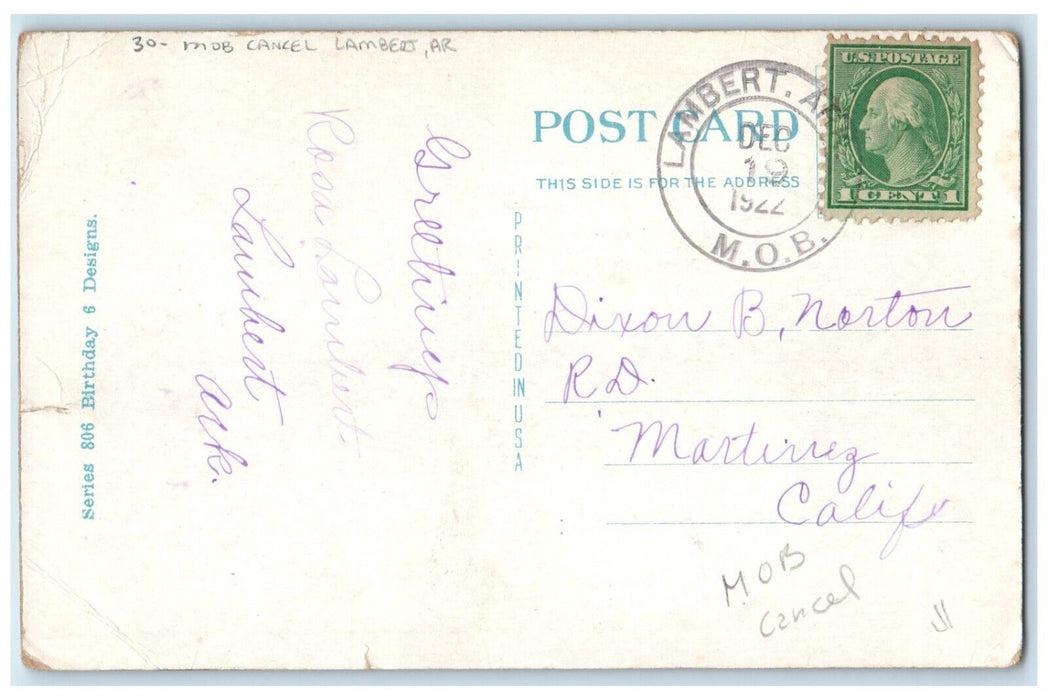 30- MOB CANCEL LAMBERT, AR
Greetings
Rosa Lambert
Lambert
Ark.
Series 806 Birthday 6 Designs.
POST CARD
THIS SIDE IS FOR THE ADDRESS
PRINTED IN USA
LAMBERT. AR
DEC
19
1922
M.O.B.
U.S. POSTAGE
1 CENT 1
Dixon B, Norton
R.D.
Martinez
Calif
MOB
cancel